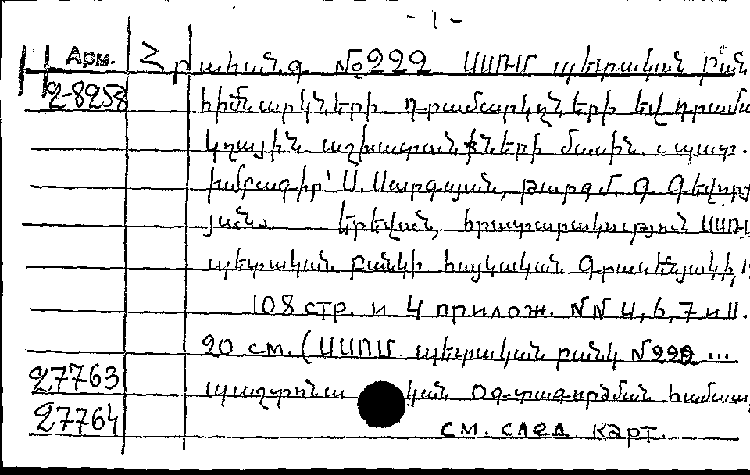 - 1 -
Арм. Հրահանգ №222 ՍՍՌՄ պետական բան
2-8258 հիմնարկների դրամարկղների եվ դրամա
կղային աշխատանքների մասին. պատ.
խմբագիր՝ Ս. Սարգսյան, թարգմ. Գ. Գեվորգ
յան. Երեվան, հրատարակություն ՍՍՌՄ
պետական բանկի հայկական Գրասենյակի,
108 стр. и 4 прилож. NN 4, 6, 7 и 11.
20 см. (ՍՍՌՄ պետական բանկ №222 ...
27763 պաշտոնա կան օգտագործման համար
27764 см. след карт.